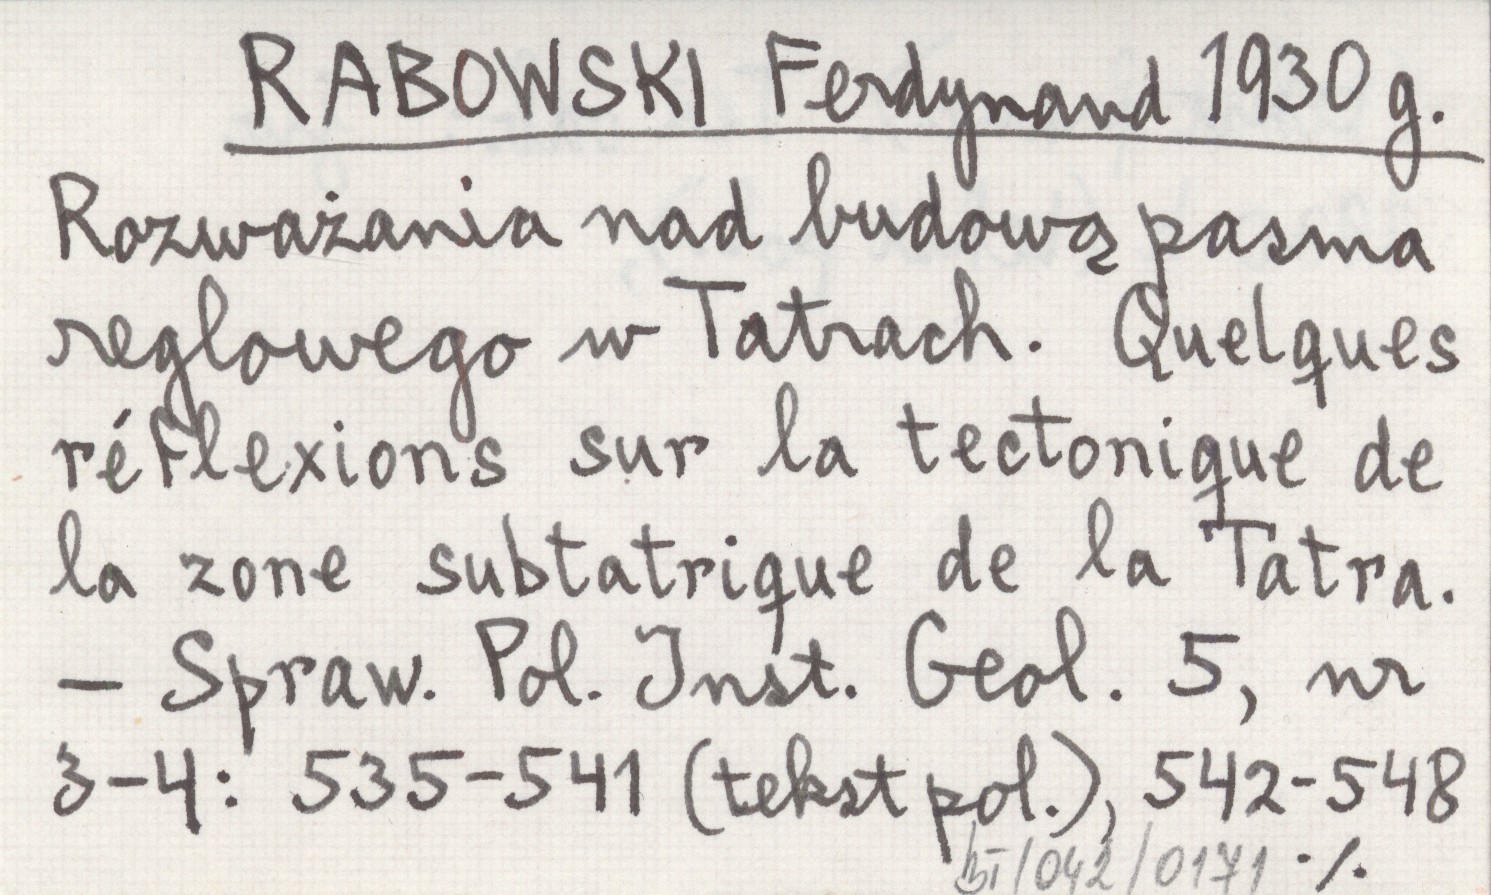 RABOWSKI Ferdynand 1930 g.
Rozważania nad budową pasma
reglowego w Tatrach. Quelques
réflexions sur la tectonique de
la zone subtatrique de la Tatra.
– Spraw. Pol. Inst. Geol. 5, nr
3-4: 535-541 (tekst pol.), 542-548
BI/042/0171 ·/.